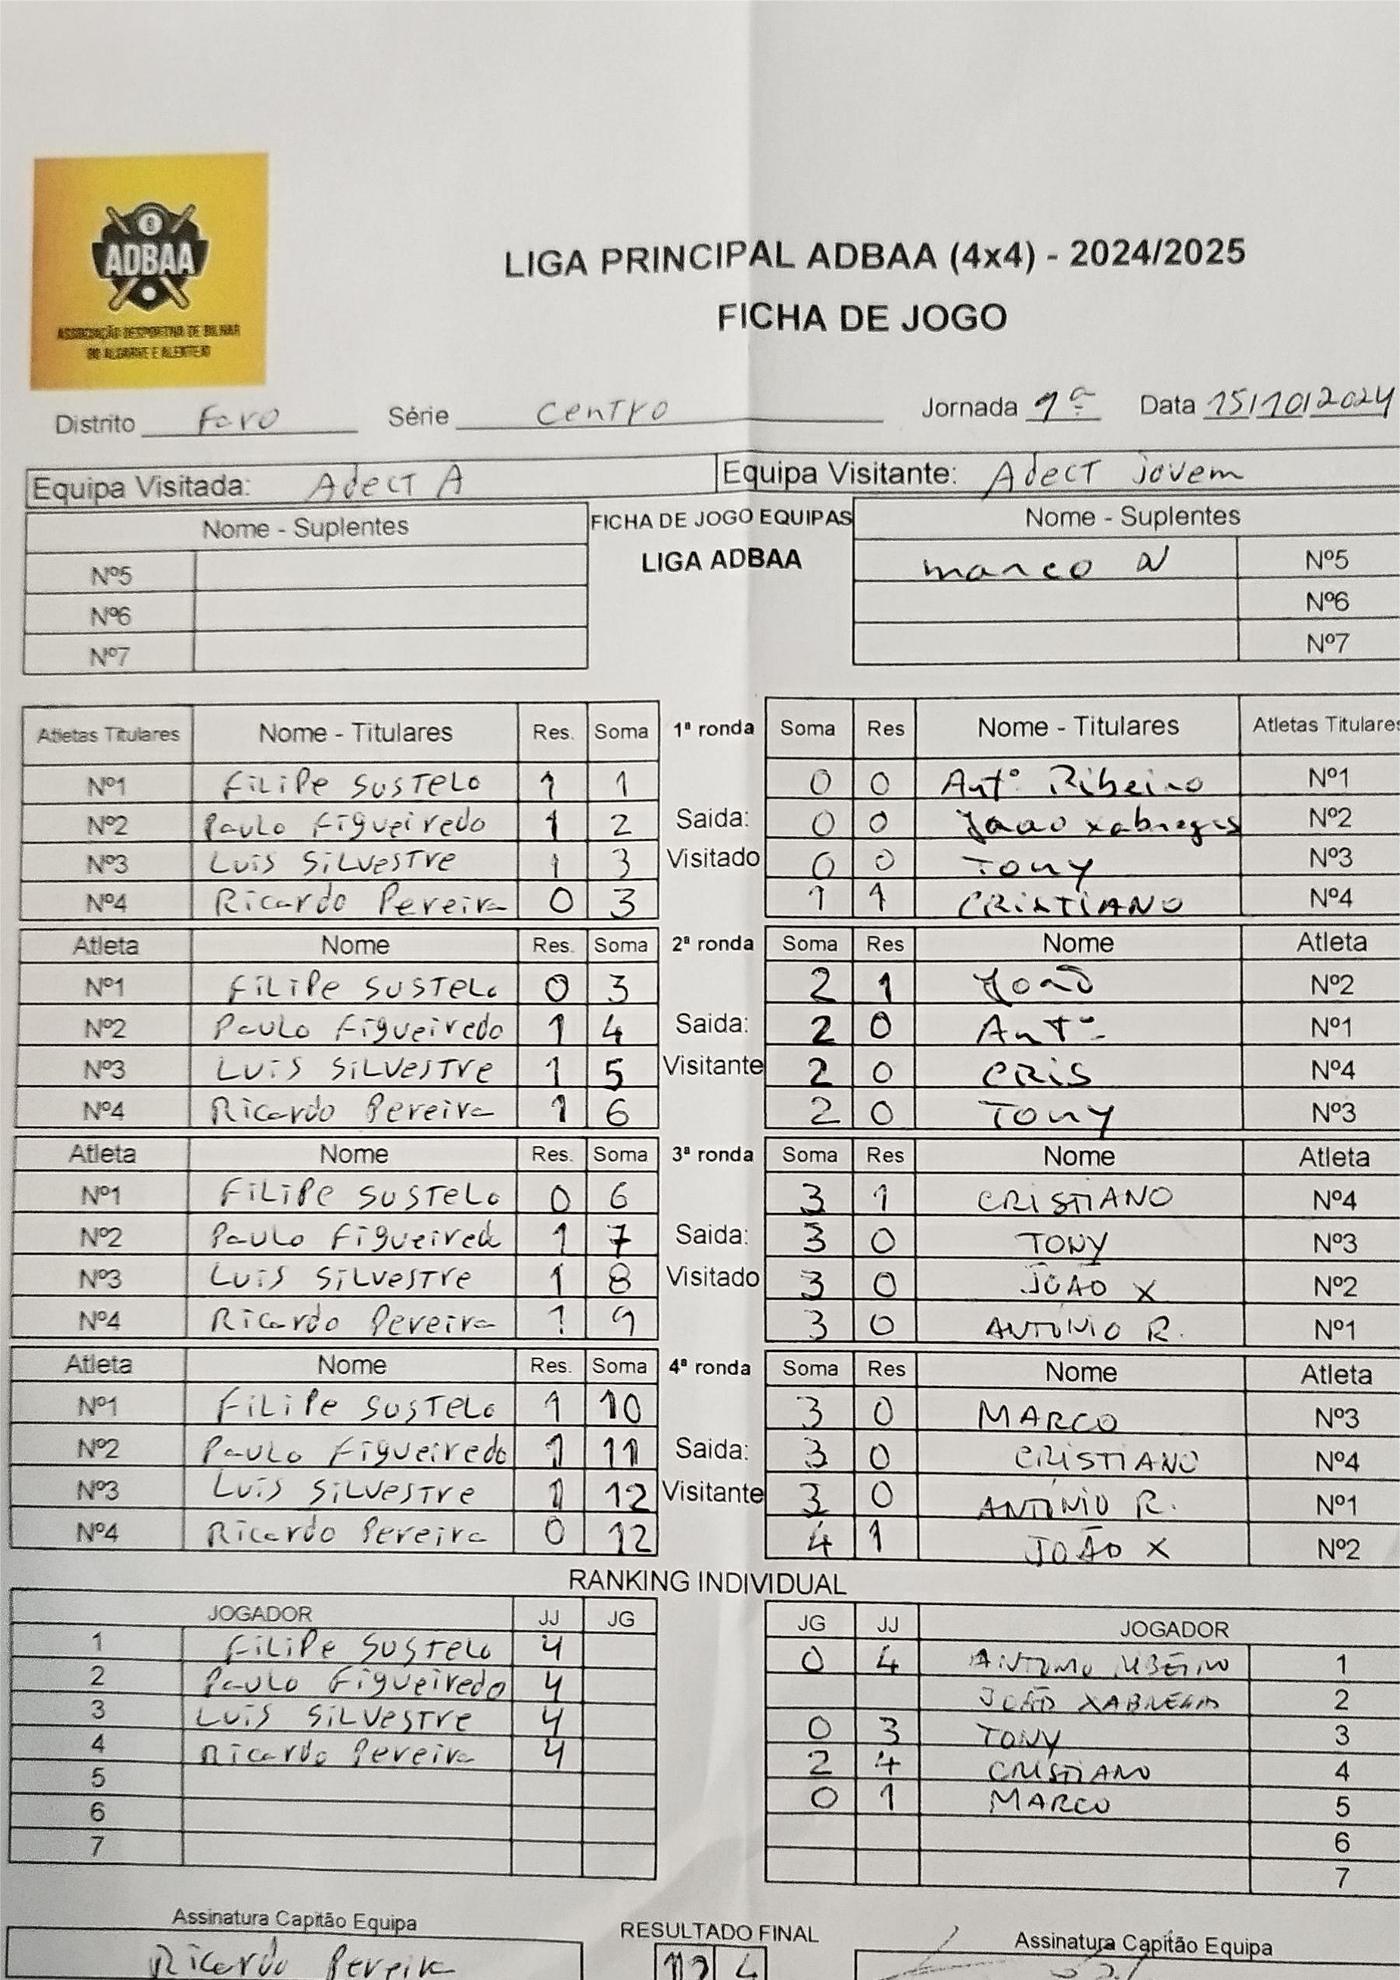 ADBAA
ASSOCIAÇÃO DESPORTIVA DE BILHAR
DO ALGARVE E ALENTEJO
LIGA PRINCIPAL ADBAA (4x4) - 2024/2025
FICHA DE JOGO
Distrito Faro Série Centro Jornada 1ª Data 15/10/2024
Equipa Visitada: Adect A Equipa Visitante: Adect jovem
Nome - Suplentes FICHA DE JOGO EQUIPAS Nome - Suplentes
LIGA ADBAA
Nº5 marco N Nº5
Nº6 Nº6
Nº7 Nº7
Atletas Titulares Nome - Titulares Res. Soma 1ª ronda Soma Res Nome - Titulares Atletas Titulares
Nº1 Filipe Sustelo 1 1 0 0 Antº Ribeiro Nº1
Nº2 Paulo Figueiredo 1 2 Saida: 0 0 Joao xabregas Nº2
Nº3 Luis Silvestre 1 3 Visitado 0 0 Tony Nº3
Nº4 Ricardo Pereira 0 3 1 1 CRISTIANO Nº4
Atleta Nome Res. Soma 2ª ronda Soma Res Nome Atleta
Nº1 Filipe Sustelo 0 3 2 1 João Nº2
Nº2 Paulo Figueiredo 1 4 Saida: 2 0 Antº Nº1
Nº3 Luis Silvestre 1 5 Visitante 2 0 CRIS Nº4
Nº4 Ricardo Pereira 1 6 2 0 Tony Nº3
Atleta Nome Res. Soma 3ª ronda Soma Res Nome Atleta
Nº1 Filipe Sustelo 0 6 3 1 CRISTIANO Nº4
Nº2 Paulo Figueired 1 7 Saida: 3 0 TONY Nº3
Nº3 Luis Silvestre 1 8 Visitado 3 0 JOÃO X Nº2
Nº4 Ricardo Pereira 1 9 3 0 ANTONIO R. Nº1
Atleta Nome Res. Soma 4ª ronda Soma Res Nome Atleta
Nº1 Filipe Sustelo 1 10 3 0 MARCO Nº3
Nº2 Paulo Figueiredo 1 11 Saida: 3 0 CRISTIANO Nº4
Nº3 Luis Silvestre 1 12 Visitante 3 0 ANTÓNIO R. Nº1
Nº4 Ricardo Pereira 0 12 4 1 JOÃO X Nº2
RANKING INDIVIDUAL
JOGADOR JJ JG JG JJ JOGADOR
1 Filipe Sustelo 4 0 4 ANTONIO RIBEIRO 1
2 Paulo Figueiredo 4 JOÃO XABREGAS 2
3 Luis Silvestre 4 0 3 TONY 3
4 Ricardo Pereira 4 2 4 CRISTIANO 4
5 0 1 MARCO 5
6 6
7 7
Assinatura Capitão Equipa RESULTADO FINAL Assinatura Capitão Equipa
Ricardo Pereira 12 4